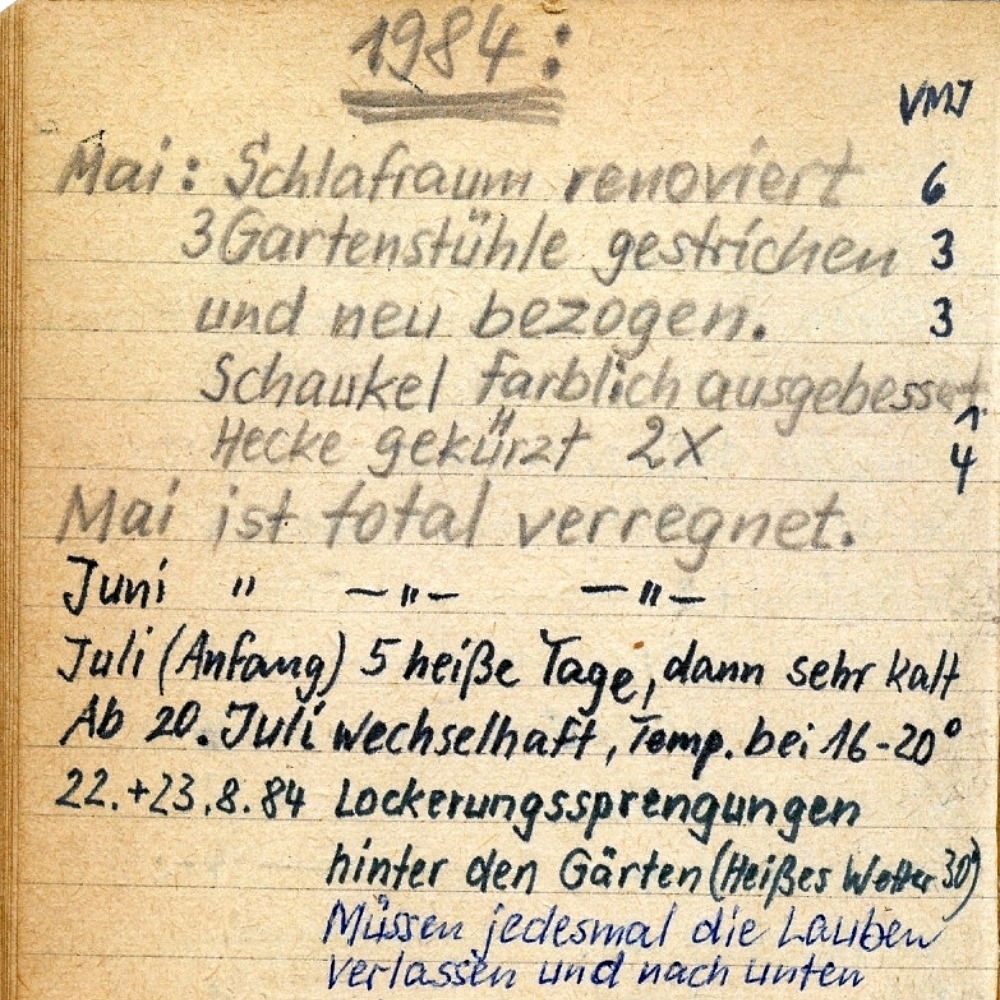 1984:
VMJ
Mai: Schlafraum renoviert 6
3 Gartenstühle gestrichen 3
und neu bezogen. 3
Schaukel farblich ausgebessert 1
Hecke gekürzt 2X 4
Mai ist total verregnet.
Juni " —"— —"—
Juli (Anfang) 5 heiße Tage, dann sehr kalt
Ab 20. Juli wechselhaft, Temp. bei 16-20°
22.+23.8.84 Lockerungssprengungen
hinter den Gärten (Heißes Wetter 30°)
Müssen jedesmal die Lauben
verlassen und nach unten